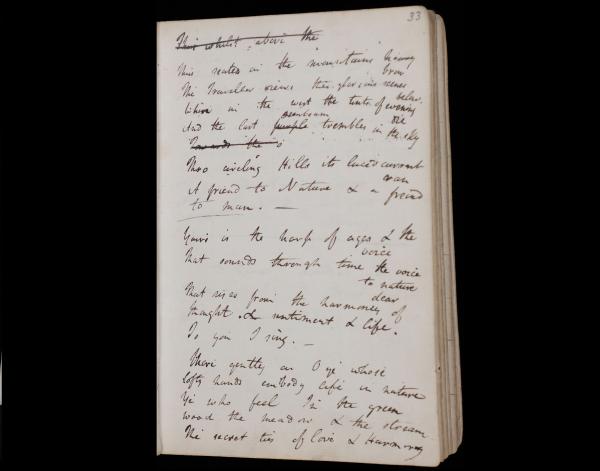 33
This whilst above the
Thus seated on the mountains heavy
brow
The Traveller views the glorious scenes
below.
Where in the west the tints of evening
die
sunbeam
And the last purple trembles in the sky
Towards the
Thro circling Hills its lucid current
ran
A friend to Nature & a friend
to man. —
Yours is the harp of ages & the
voice
That sounds through time the voice
to nature
dear
That rises from the harmony of
thought & sentiment & life.
To you I sing. —
Move gently on O ye whose
lofty hands embody life in nature
Ye who feel in the green
wood the meadow & the stream
The secret ties of love & Harmony